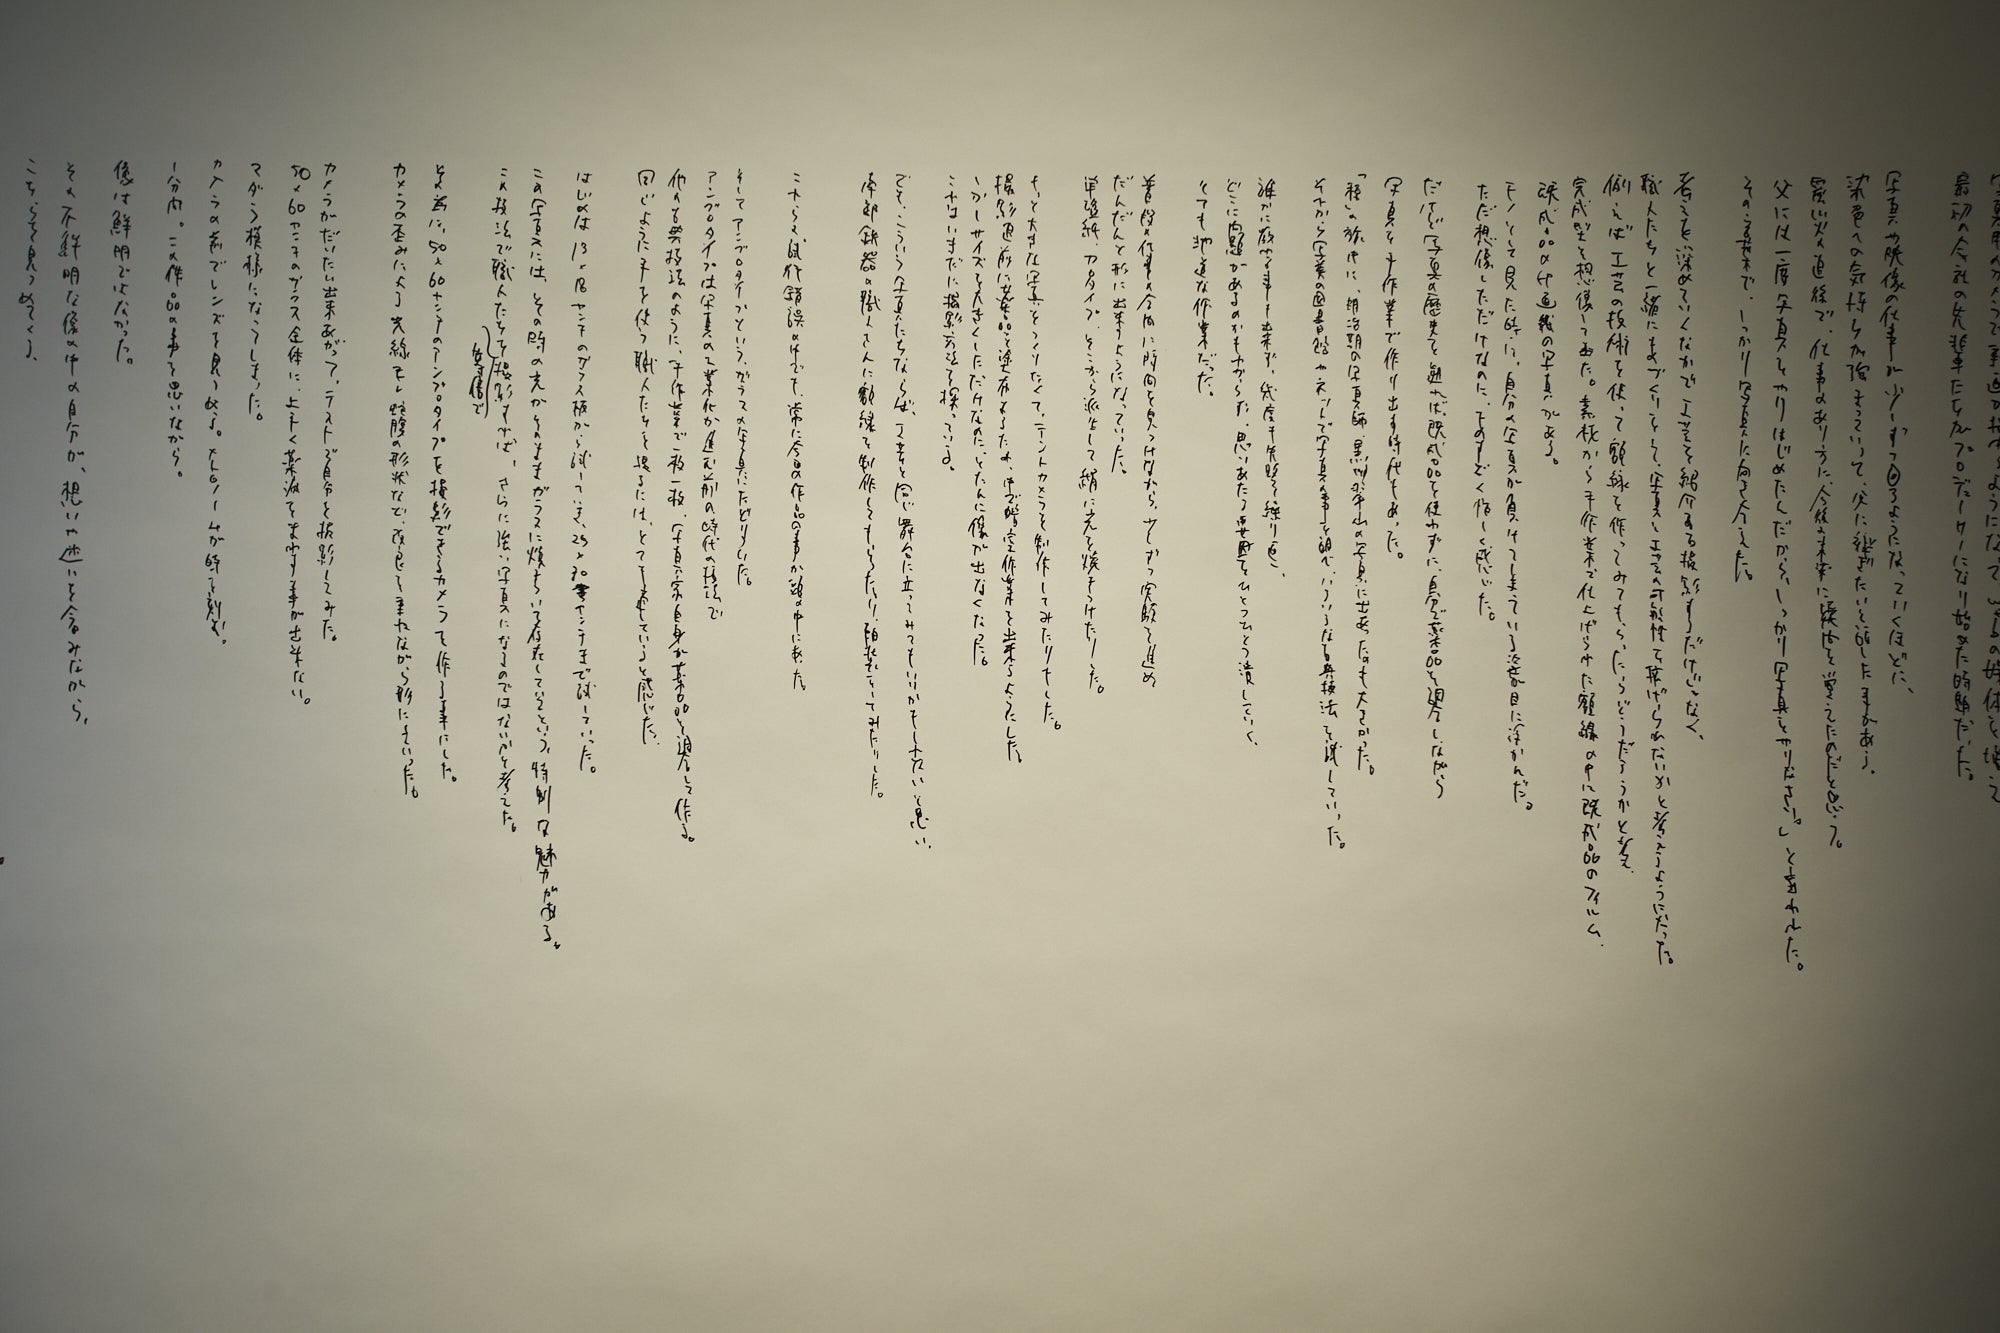 最初の会社の先輩たちがプロデューサーになり始めた時期だった。
写真や映像の仕事が少しずつ回るようになっていくほどに、
染色への気持ちが強まっていって、父に継ぎたいと話した事がある。
震災の直後で、仕事のあり方に、今後の未来に疑問を覚えたのだと思う。
父には「一度写真をやりはじめたんだから、しっかり写真をやりなさい。」と言われた。
その言葉で、しっかり写真に向き合えた。
考えを深めていくなかで工芸を紹介する撮影するだけじゃなく、
職人たちと一緒にものづくりをして、写真と工芸の可能性を拡げられないかと考えるようになった。
例えば工芸の技術を使って額縁を作ってみてもらったらどうだろうかと考え、
完成型を想像してみた。素材から手作業で仕上げられた額縁の中に既成品のフィルム、
既成品の印画紙の写真がある。
モノとして見た時に、自分の写真が負けてしまっている姿が目に浮かんだ。
ただ想像しただけなのに、ものすごく悔しく感じた。
だけど写真の歴史を遡れば、既成品を使わずに、自分で薬品を調合しながら
写真を手作業で作り出す時代もあった。
「 」の旅中に、明治期の写真師 の写真に出会ったのも大きかった。
それから写真の図書館やネットで写真の事を調べ、いろいろな古典技法を試していった。
誰かに教わる事も出来ず、幾度も失敗を繰り返し、
どこに問題があるのかもわからず、思いあたる要因をひとつひとつ潰していく、
とても地道な作業だった。
普段の仕事の合間に時間を見つけながら、少しずつ実験を進め
だんだんと形に出来るようになっていった。
鶏卵紙、カロタイプ、そこから派生して絹に光を焼きつけたりした。
もっと大きな写真をつくりたくて、テントカメラを制作してみたりもした。
撮影直前に薬品を塗布するため、中で暗室作業を出来るようにした。
しかしサイズを大きくしただけなのに、とたんに像が出なくなった。
これはいまだに撮影方法を探っている。
でも、こういう写真たちならば、工芸と同じ舞台に立ってみてもいいかもしれないと思い、
南部鉄器の職人さんに額縁を制作してもらったり、 してみたりした。
これらは試行錯誤の中でも、常に今回の作品の事が頭の中にあった。
そしてアンブロタイプという、ガラスの写真にたどりついた。
アンブロタイプは写真の工業化が進む前の時代の技法で
他の古典技法のように、手作業で一枚一枚、写真家自身が薬品を調合して作る。
同じように手を使う職人たちを撮るには、とても適していると感じた。
はじめは13×18センチのガラス板から試していき、25×30センチまで試していった。
この写真には、その時の光がそのままガラスに焼きついて存在しているという、特別な魅力がある。
この技法で職人たちを等身大で撮影すれば、さらに強い写真になるのではないかと考えた。
その為に、50×60センチのアンブロタイプを撮影できるカメラを作る事にした。
カメラの歪みによる光線モレ、蛇腹の形状など、改良を重ねながら形にしていった。
カメラがだいたい出来あがって、テストで自分を撮影してみた。
50×60センチのガラス全体に、上手く薬液をまわす事が出来ない。
マダラ模様になってしまった。
カメラの前でレンズを見つめる。メトロノームが時を刻む。
1分間。この作品の事を思いながら。
像は鮮明ではなかった。
その不鮮明な像の中の自分が、想いや迷いを含みながら、
こちらを見つめてくる。